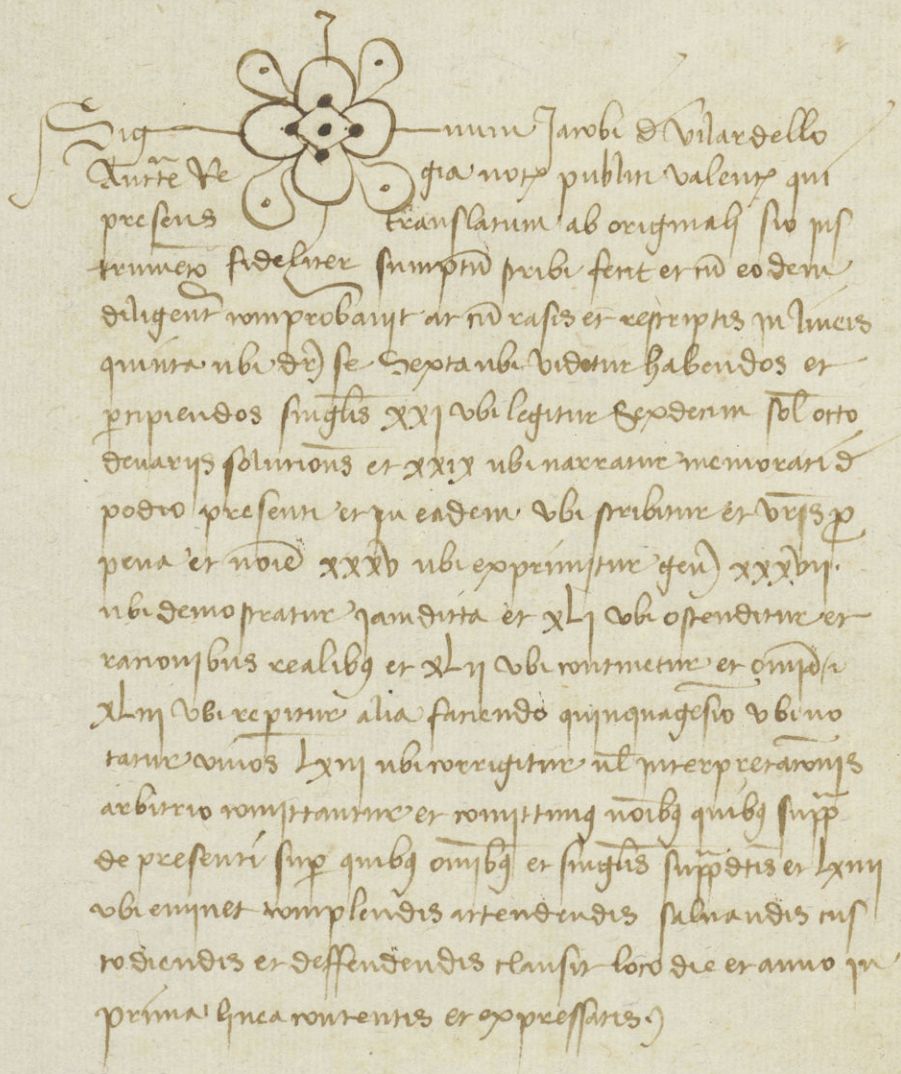 Sig num Jacobi de Vilardello
Auctte Re gia notr publici valentr qui
presens translatum ab originali suo ins
trumeto fideliter sumptu scribi fecit et cu eodem
diligent comprobavit ac cu rasis et rescriptis in lineis
quinta ubi dr se Sexta ubi videtur habendos et
percipiendos singlis xxi ubi legitur Sexdecim sol octo
denariis solutions et xxix ubi narratur memorati de
podio presenti et in eadem ubi scribitur et vris pro
pena et noie xxxv ubi exprimitur gen xxxvii
ubi demostratur jamdicta et xli ubi ostenditur et
racionibus realibus et xlii ubi continetur et
xliii ubi reperitur alia faciendo quinquagesio ubi no
tatur vivos lxiii ubi corrigitur vel interpretacionis
arbitrio comittantur et comittimus noibus quibus supra
de presenti super quibus omibus et singlis supradictis et lxiiii
ubi eminet complendis attendendis salvandis cus
todiendis et deffendendis clausit loco die et anno in
prima linea contentis et expressatis